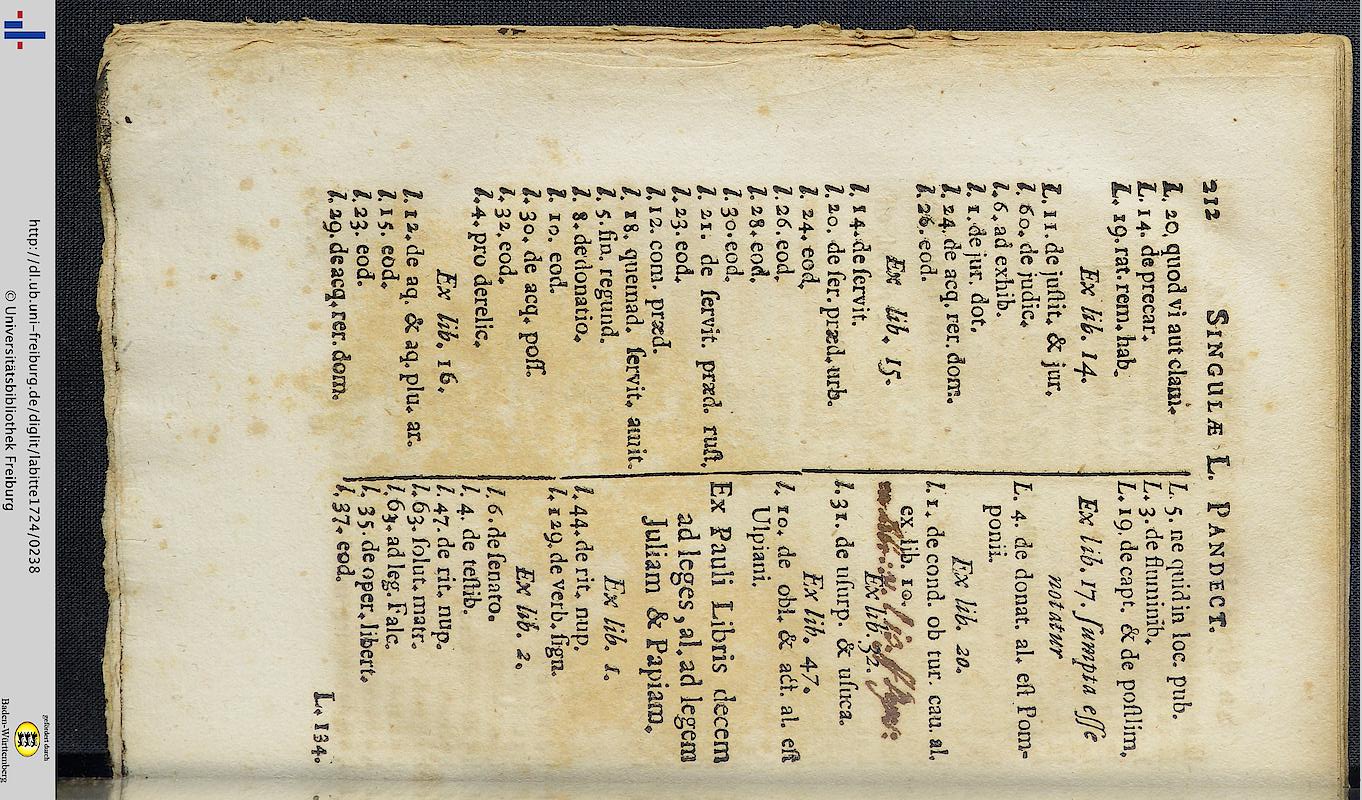 212 SINGULÆ L. PANDECT.
L. 20. quod vi aut clam.
L. 14. de precar.
L. 19. rat. rem. hab.
Ex lib. 14.
L. 11. de juſtit. & jur.
l. 60. de judic.
l. 6. ad exhib.
l. 1. de jur. dot.
l. 24. de acq. rer. dom.
l. 26. eod.
Ex lib. 15.
l. 14. de ſervit.
l. 20. de ſer. præd. urb.
l. 24. eod.
l. 26. eod.
l. 28. eod.
l. 30. eod.
l. 21. de ſervit. præd. ruſt.
l. 23. eod.
l. 12. com. præd.
l. 18. quemad. ſervit. amit.
l. 5. fin. regund.
l. 8. de donatio.
l. 10. eod.
l. 30. de acq. poſſ.
l. 32. eod.
l. 4. pro derelic.
Ex lib. 16.
l. 12. de aq. & aq. plu. ar.
l. 15. eod.
l. 23. eod.
l. 29. de acq. rer. dom.
L. 5. ne quid in loc. pub.
L. 3. de fluminib.
L. 19. de capt. & de poſtlim.
Ex lib. 17. ſumpta eſſe
notatur
L. 4. de donat. al. eſt Pom-
ponii.
Ex lib. 20.
l. 1. de cond. ob tur. cau. al.
ex lib. 10.
Ex lib. 32.
l. 31. de uſurp. & uſuca.
Ex lib. 47.
l. 10. de obl. & act. al. eſt
Ulpiani.
Ex Pauli Libris decem
ad leges, al. ad legem
Juliam & Papiam.
Ex lib. 1.
l. 44. de rit. nup.
l. 129. de verb. ſign.
Ex lib. 2.
l. 6. de ſenato.
l. 4. de teſtib.
l. 47. de rit. nup.
l. 63. ſolut. matr.
l. 63. ad leg. Falc.
l. 35. de oper. libert.
l. 37. eod.
L. 134.
http://dl.ub.uni-freiburg.de/diglit/labitte1724/0238
© Universitätsbibliothek Freiburg
gefördert durch
Baden-Württemberg